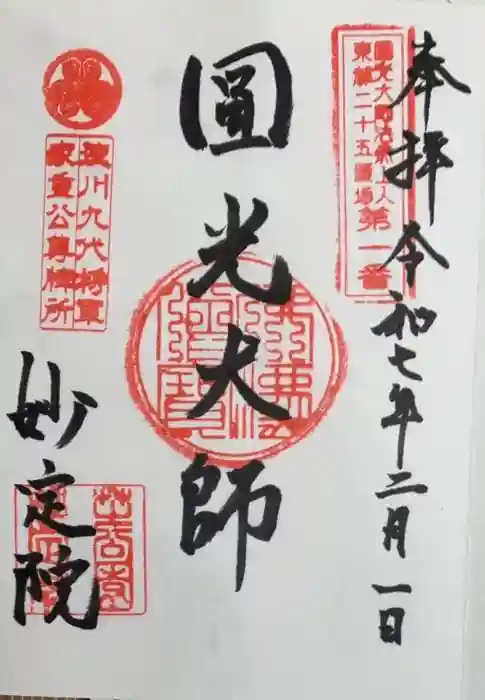 奉拝 令和七年二月一日
圓光大師法然上人
東都二十五霊場
第一番
圓光大師
佛法僧寶
徳川九代将軍
家重公尊牌所
妙定院